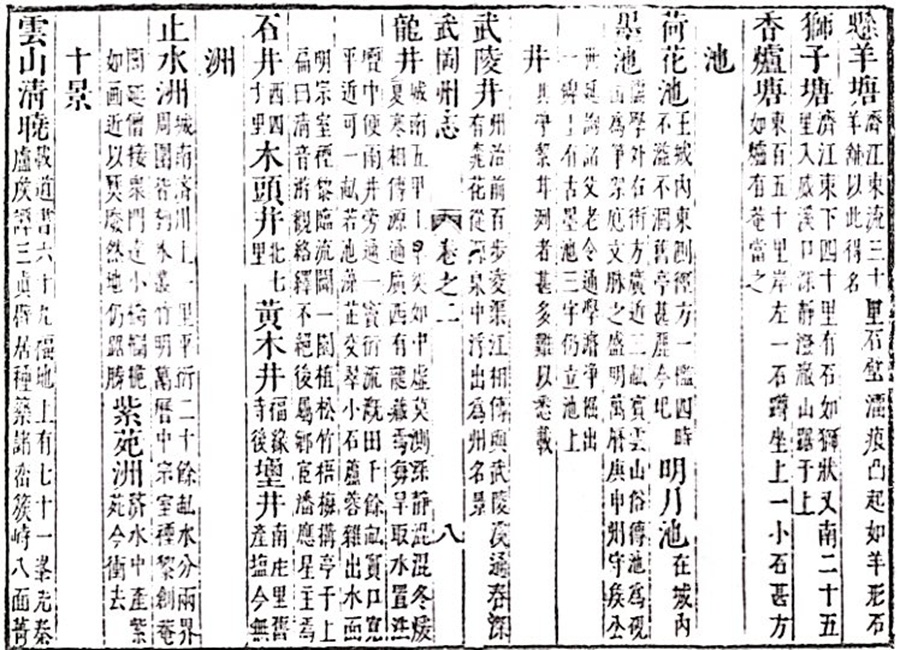 懸羊塘 濟江東流三十里石壁濡痕凸起如羊形石
羊鋪以此得名
獅子塘 濟江東下四十里有石如獅狀又南二十五
里入威溪口深靜澄澈山露于上
香爐塘 東百五十里岸左一石蹲坐上一小石甚方
如爐有菴當之
池
荷花池 王城內東割徑方一鑑四時
不溢不涸舊亭甚麗今圮
明月池 在城內
墨池 儒學外右街方廣近三畝賓雲山俗傳池為硯
山為筆架庭文脉之盛明萬曆庚申州守侯公
世延詢諸父老令通學濟淨掘出
一碑上有古墨池三字仍立池上
井 井洌者甚多難以悉載
武陵井 州治前百步凌渠江相傳與武陵溪通春深
有桃花從源泉中浮出為州名景
武岡州志 卷之二 八
龍井 城南五里中虛莫測深靜混混冬煖
夏寒相傳源通廣西有龍藏焉每旱取水置
竇中便雨井旁通一竇衍流溉田千餘畝竇口寬
平近可一畝若池藻荇交翠小石蘆蓉雜出水面
明宗室禋黎臨流闢一園植松竹梧梅構亭于上
扁曰清音游觀絡繹不絕後屬鄉宦潘應星主焉
石井 西四十里
木頭井 北七里
黃木井 福緣寺後
塩井 南庄里舊產塩今無
洲
止水洲 城南濟川上一里平衍二十餘畝水分兩界
周圍皆竹明萬曆中宗室禋黎創菴
閣延僧接眾門達小橋欄檻
如画近以莫廢然地仍踞勝
紫苑洲 濟水中產紫苑今衝去
十景
雲山清曉 載道書六十九福地上有七十一峯尤秦
盧侯譚三貞僻居種藥諸巒簇峙八面菁